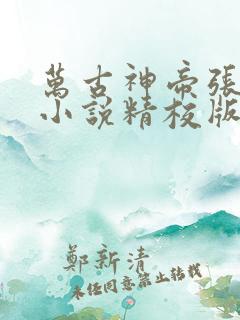 萬古神帝張
小說精校版
鄭新清
未經同意禁止轉載